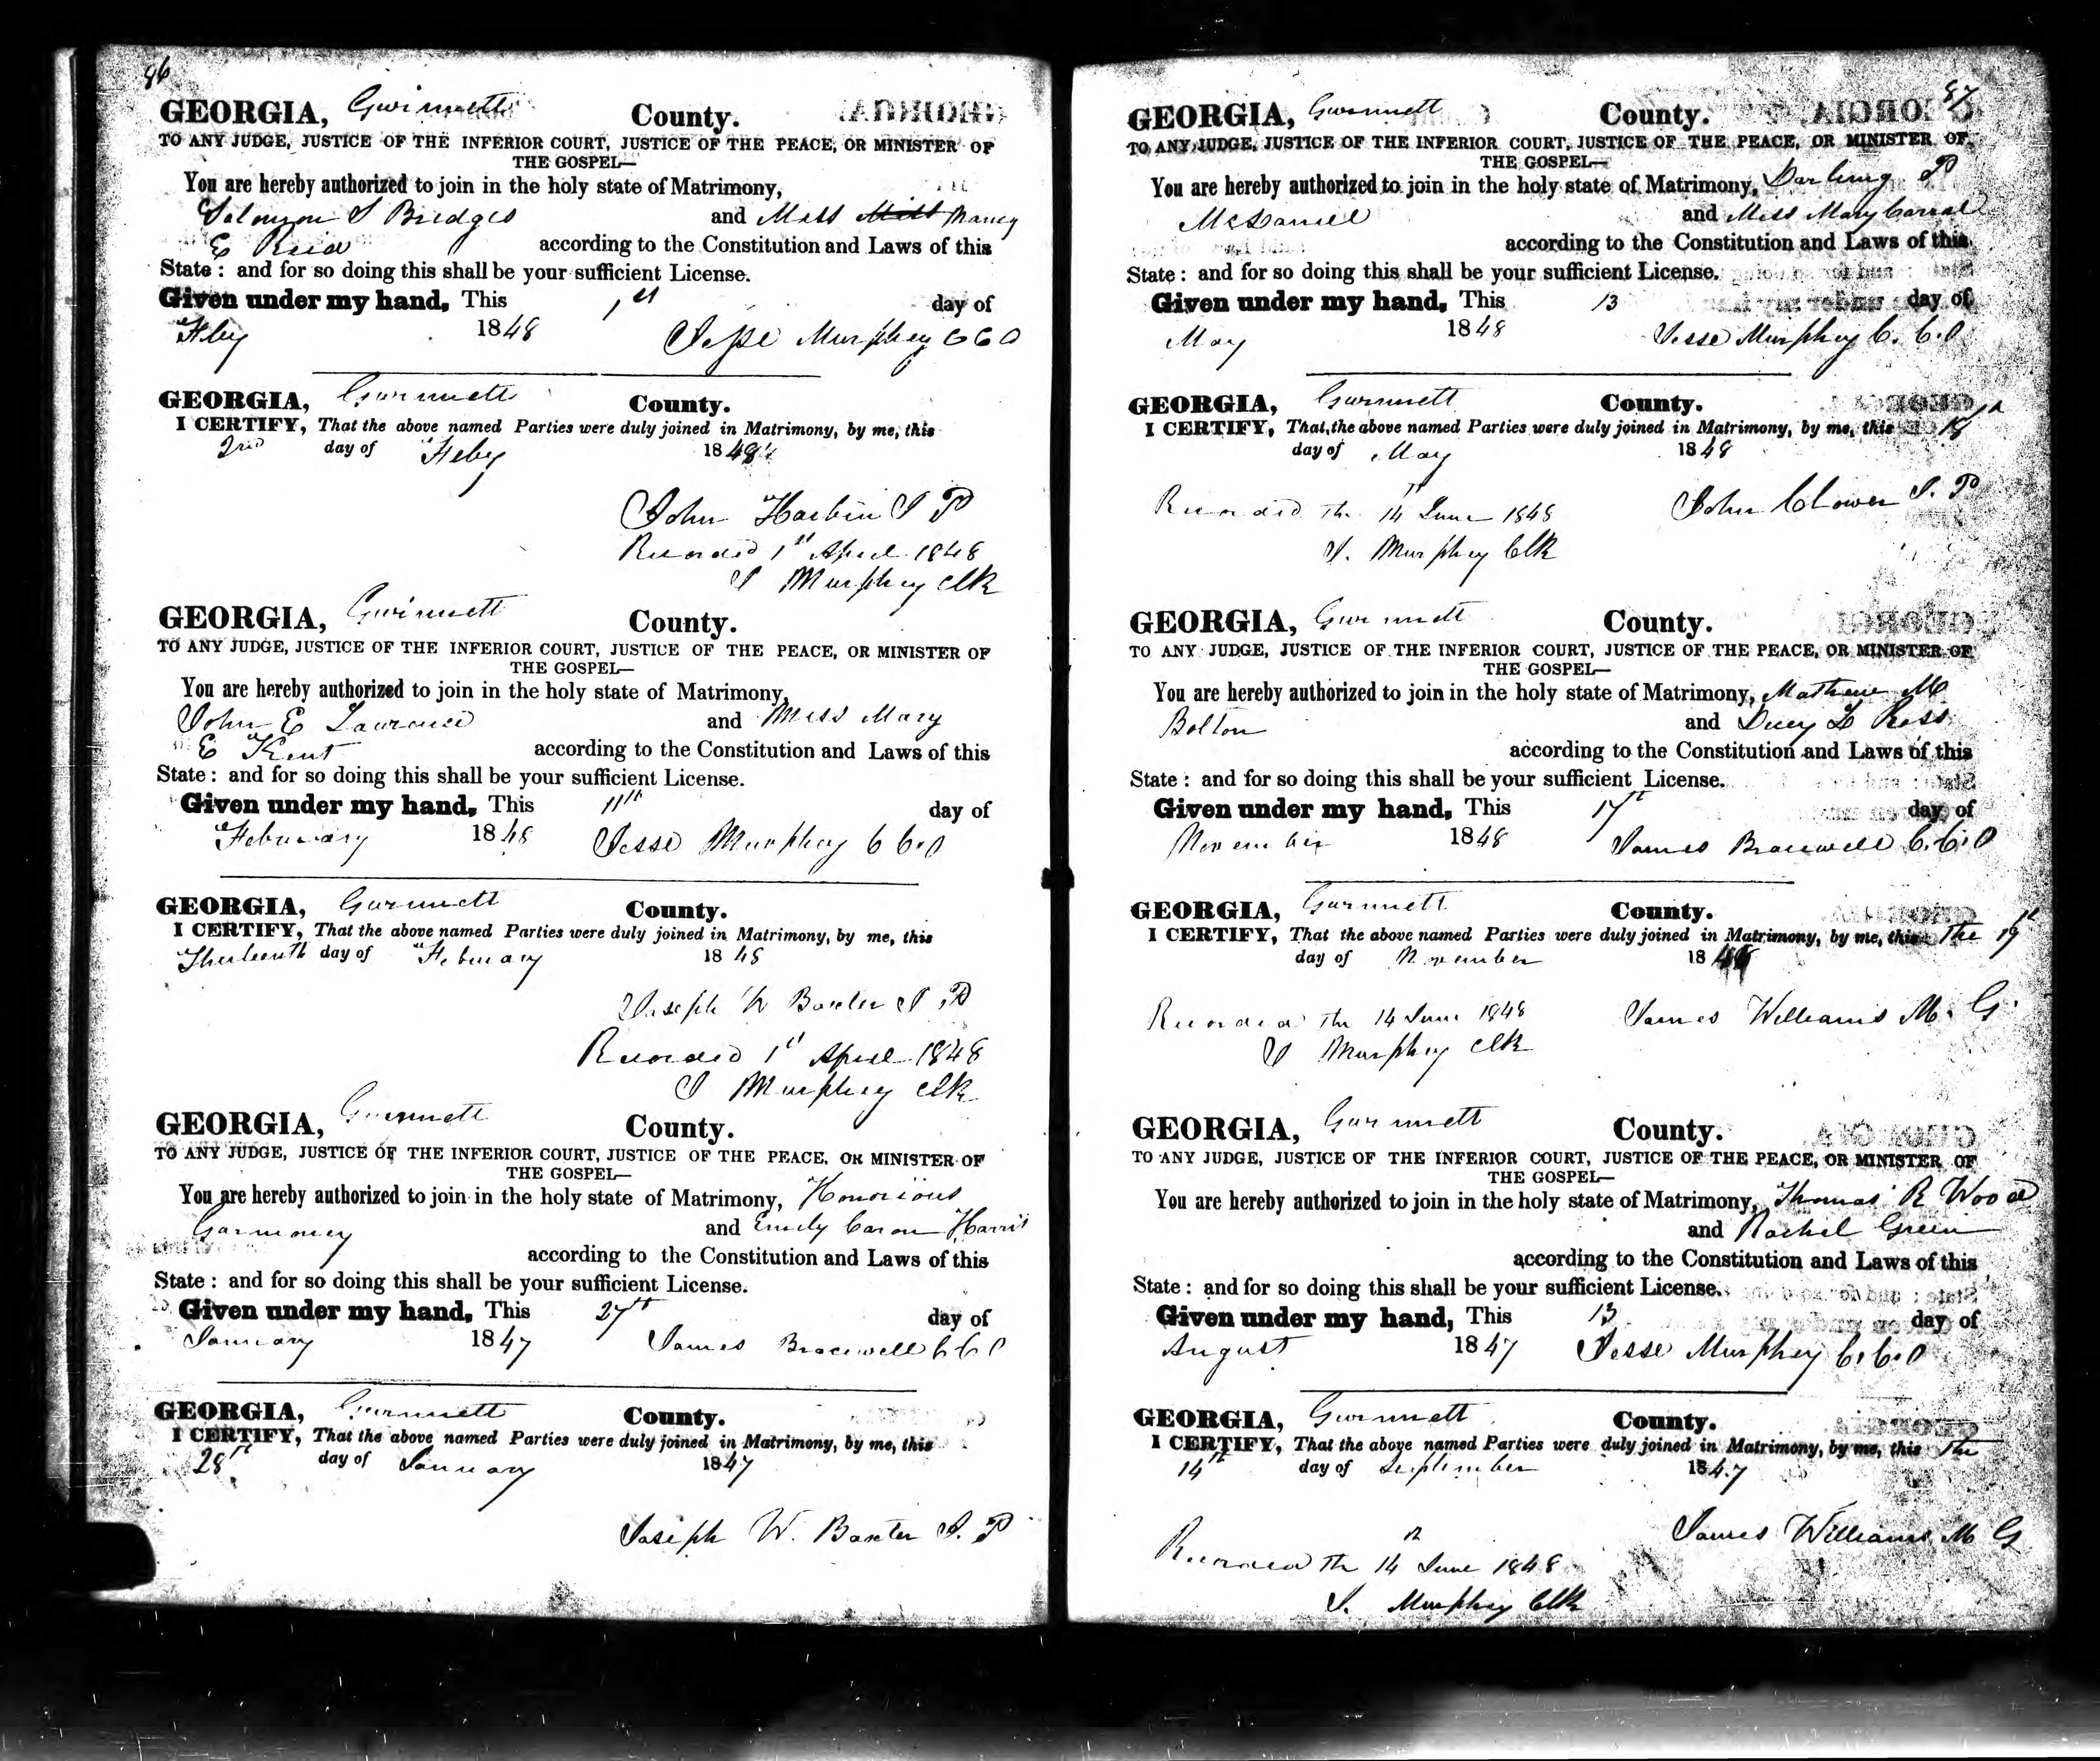 86
GEORGIA, Gwinnett County.
TO ANY JUDGE, JUSTICE OF THE INFERIOR COURT, JUSTICE OF THE PEACE, OR MINISTER OF
THE GOSPEL—
You are hereby authorized to join in the holy state of Matrimony,
Solomon S Bridges and Miss Miss Nancy
E Reid according to the Constitution and Laws of this
State: and for so doing this shall be your sufficient License.
Given under my hand, This 1st day of
Feby 1848 Jesse Murphey C C O
GEORGIA, Gwinnett County.
I CERTIFY, That the above named Parties were duly joined in Matrimony, by me, this
2nd day of Feby 1848
John Harbin J P
Recorded 1st April 1848
J Murphey Clk
GEORGIA, Gwinnett County.
TO ANY JUDGE, JUSTICE OF THE INFERIOR COURT, JUSTICE OF THE PEACE, OR MINISTER OF
THE GOSPEL—
You are hereby authorized to join in the holy state of Matrimony,
John E Lawrence and Miss Mary
E Kent according to the Constitution and Laws of this
State: and for so doing this shall be your sufficient License.
Given under my hand, This 11th day of
February 1848 Jesse Murphey C C.O
GEORGIA, Gwinnett County.
I CERTIFY, That the above named Parties were duly joined in Matrimony, by me, this
Thirteenth day of February 1848
Joseph W Baxter J P
Recorded 1st April 1848
J Murphey Clk
GEORGIA, Gwinnett County.
TO ANY JUDGE, JUSTICE OF THE INFERIOR COURT, JUSTICE OF THE PEACE, OR MINISTER OF
THE GOSPEL—
You are hereby authorized to join in the holy state of Matrimony, Honorious
Garmoney and Emily Harris
according to the Constitution and Laws of this
State: and for so doing this shall be your sufficient License.
Given under my hand, This 27th day of
January 1847 James Bracewell C C O
GEORGIA, Gwinnett County.
I CERTIFY, That the above named Parties were duly joined in Matrimony, by me, this
28th day of January 1847
Joseph W. Baxter J. P
87
GEORGIA, Gwinnett County.
TO ANY JUDGE, JUSTICE OF THE INFERIOR COURT, JUSTICE OF THE PEACE, OR MINISTER OF
THE GOSPEL—
You are hereby authorized to join in the holy state of Matrimony, Darling P
McDaniel and Miss Mary Carral
according to the Constitution and Laws of this
State: and for so doing this shall be your sufficient License.
Given under my hand, This 13 day of
May 1848 Jesse Murphey C. C.O
GEORGIA, Gwinnett County.
I CERTIFY, That the above named Parties were duly joined in Matrimony, by me, this 18th
day of May 1848
John Clower J. P
Recorded The 14th June 1848
J. Murphey Clk
GEORGIA, Gwinnett County.
TO ANY JUDGE, JUSTICE OF THE INFERIOR COURT, JUSTICE OF THE PEACE, OR MINISTER OF
THE GOSPEL—
You are hereby authorized to join in the holy state of Matrimony, M
Bolton and L Ross
according to the Constitution and Laws of this
State: and for so doing this shall be your sufficient License.
Given under my hand, This 17th day of
November 1848 James Bracewell C.C.O
GEORGIA, Gwinnett County.
I CERTIFY, That the above named Parties were duly joined in Matrimony, by me, this The 19th
day of November 18
James Williams M. G.
Recorded The 14 June 1848
J Murphey Clk
GEORGIA, Gwinnett County.
TO ANY JUDGE, JUSTICE OF THE INFERIOR COURT, JUSTICE OF THE PEACE, OR MINISTER OF
THE GOSPEL—
You are hereby authorized to join in the holy state of Matrimony, Thomas R Wood
and Rachel Green
according to the Constitution and Laws of this
State: and for so doing this shall be your sufficient License.
Given under my hand, This 13 day of
August 1847 Jesse Murphey C.C.O
GEORGIA, Gwinnett County.
I CERTIFY, That the above named Parties were duly joined in Matrimony, by me, this The
14th day of September 1847
James Williams M G
Recorded The 14th June 1848
J. Murphey Clk